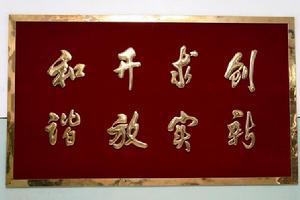 创新
求实
开放
和谐